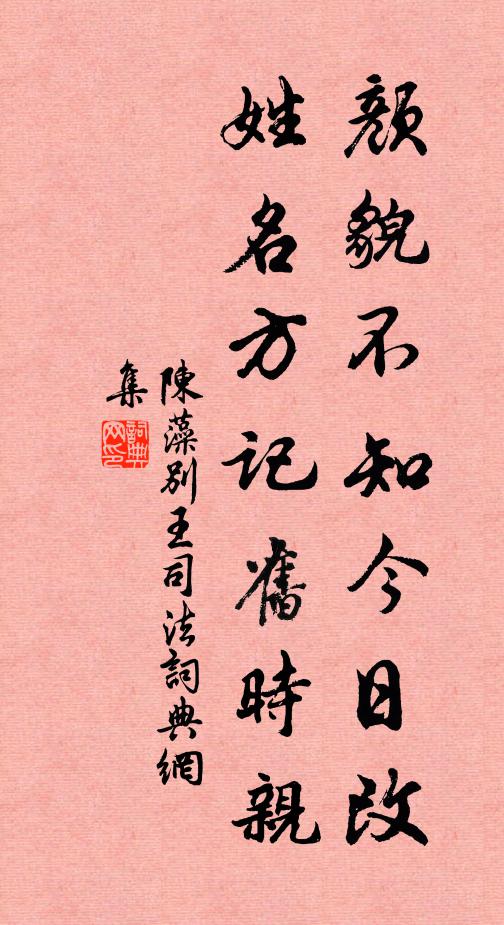 顏貌不知今日改
姓名方記舊時親
陳藻別王司法詞典網
集
詞典
网印